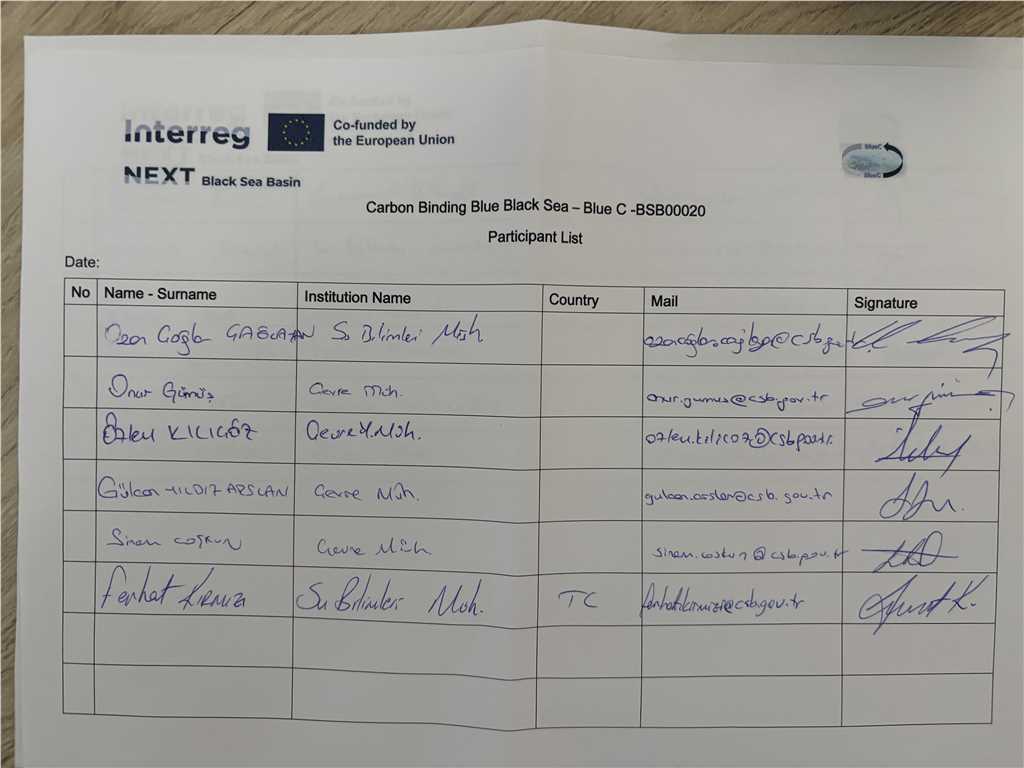 Interreg
Co-funded by
the European Union
NEXT Black Sea Basin
blueC
BlueC
Carbon Binding Blue Black Sea – Blue C -BSB00020
Participant List
Date:
No Name - Surname Institution Name Country Mail Signature
Ozan Çağlar ÇAĞLAYAN Su Bilimleri Müh
Onur Gümüş Çevre Müh. onur.gumus@csb.gov.tr
Özlem KILIÇÖZ Çevre Müh. ozlem.kilicoz@csb.gov.tr
Gülcan YILDIZ ARSLAN Çevre Müh. gulcan.arslan@csb.gov.tr
Sinem COŞKUN Çevre Müh. sinem.coskun@csb.gov.tr
Ferhat KIRMIZI Su Bilimleri Müh. TC ferhat.kirmizi@csb.gov.tr